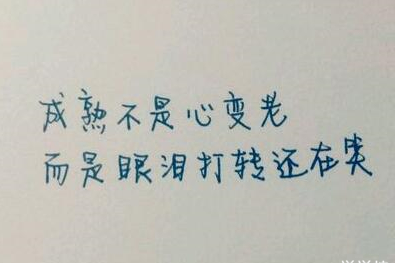 成熟不是心变老
而是眼泪打转还在笑